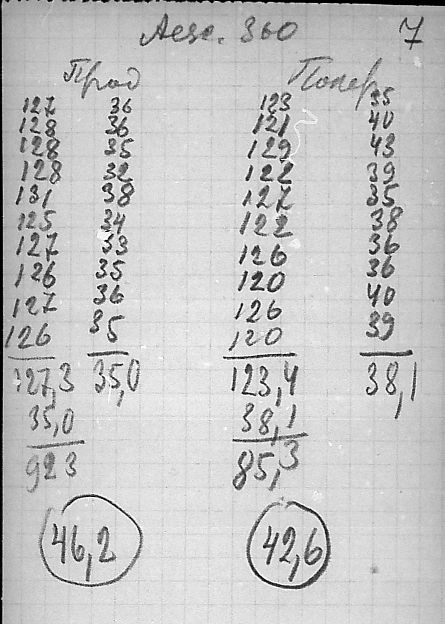 7
Прод Попер
127 36 123 35
128 36 121 40
128 35 129 43
128 32 122 39
131 38 127 35
125 34 122 38
127 33 126 36
126 35 120 36
127 36 126 40
126 35 120 39
127,3 35,0 123,4 38,1
35,0 38,1
923 85,3
46,2 42,6